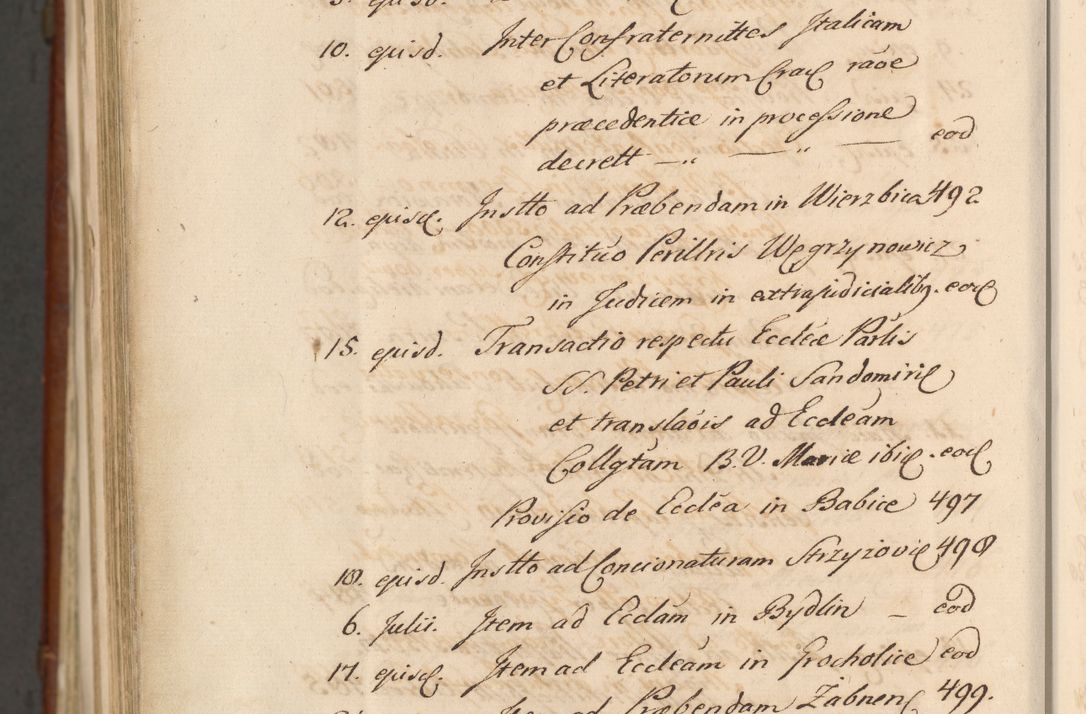 10. episd. Inter Confraternittes Italicam
et Literatorum Crac̃ rãoe
præcedentiæ in processione
decrett — „ — „ — eod
12. episd. Instto ad Præbendam in Wierzbica 492
Constituo Perillris Węgrzynowicz
in Judicem in extrajudicialibq. eod
15. episd. Transactio respectu Eccleæ Parlis
SS. Petri et Pauli Sandomirie
et translãois ad Eccleam
Collgtam B. V. Mariæ ibid. eod
Provisio de Ecclea in Babice 497
18. episd. Instto ad Concionaturam Strzyzovie 498
6. Julii. Item ad Ecclam in Bydlin — eod
17. episd. Item ad Eccleam in Grocholice eod
ad Præbendam Żabnen 499.